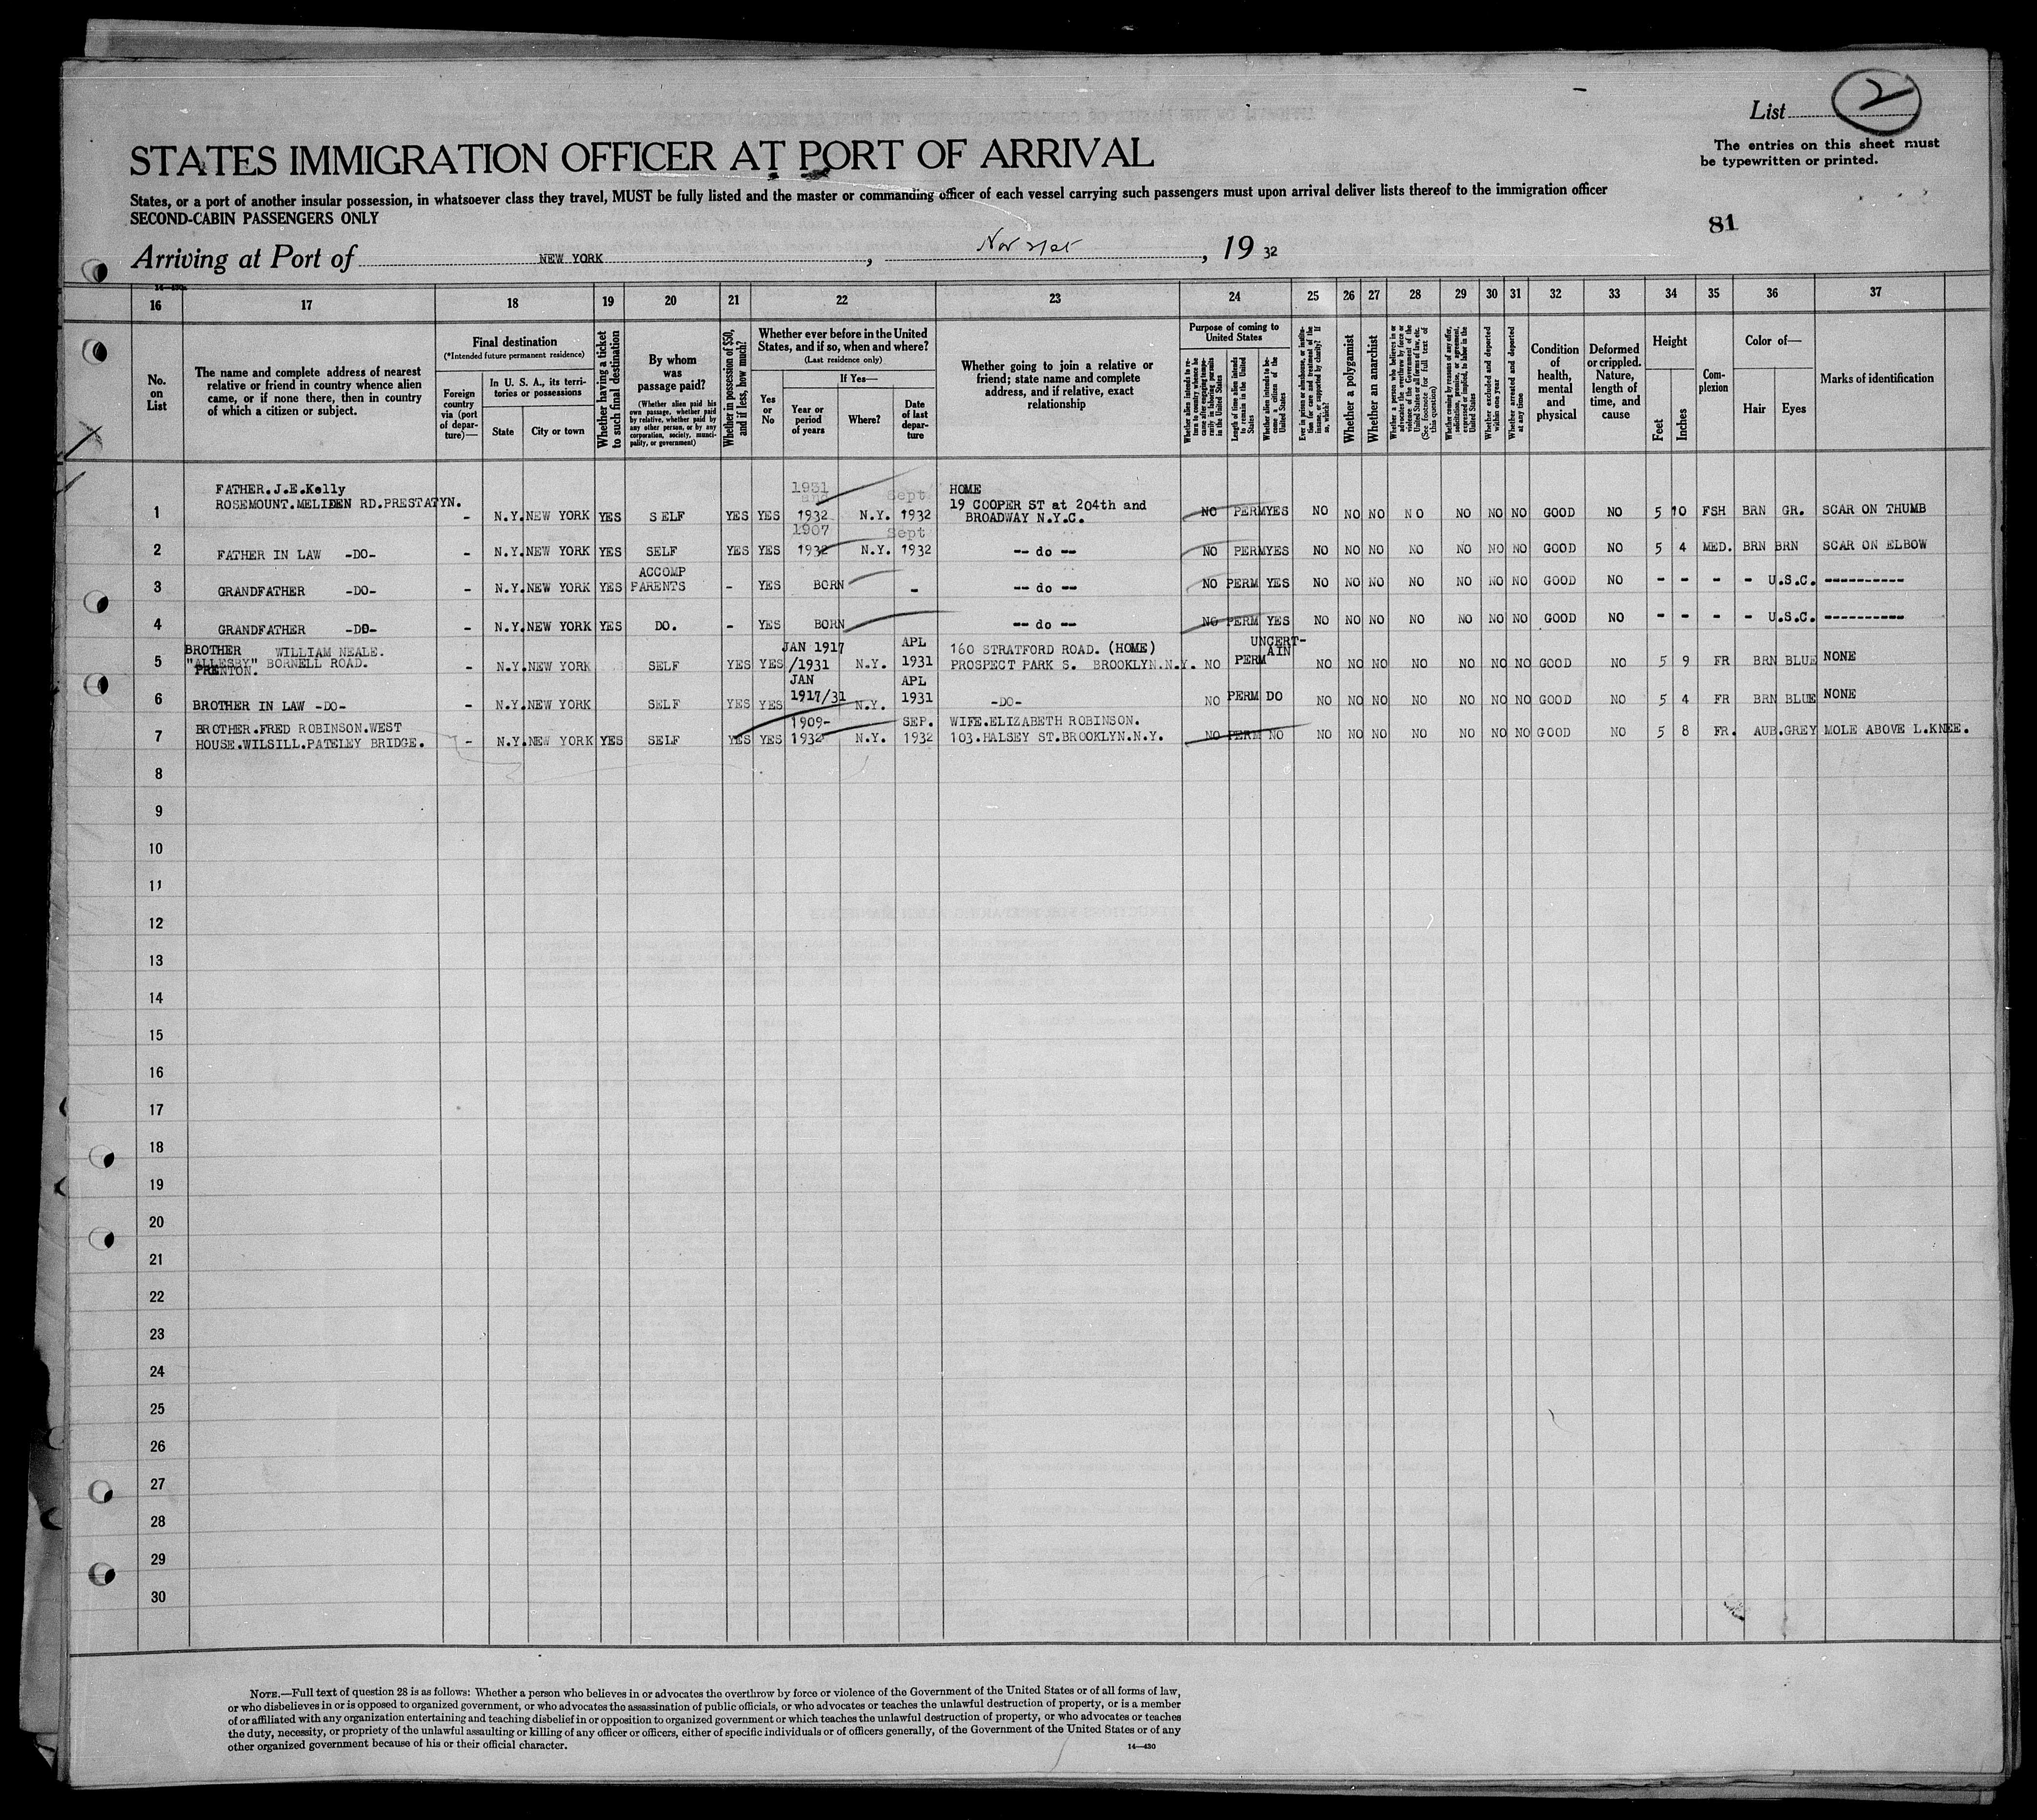 List 2
The entries on this sheet must
be typewritten or printed.
STATES IMMIGRATION OFFICER AT PORT OF ARRIVAL
States, or a port of another insular possession, in whatsoever class they travel, MUST be fully listed and the master or commanding officer of each vessel carrying such passengers must upon arrival deliver lists thereof to the immigration officer
SECOND-CABIN PASSENGERS ONLY
81
Arriving at Port of NEW YORK, Nov 21st, 1932
16 17 18 19 20 21 22 23 24 25 26 27 28 29 30 31 32 33 34 35 36 37
No. on List
The name and complete address of nearest
relative or friend in country whence alien
came, or if none there, then in country
of which a citizen or subject.
Final destination
(*Intended future permanent residence)
Foreign country via (port of departure)—
In U. S. A., its territories or possessions
State
City or town
Whether having a ticket to such final destination
By whom was passage paid?
(Whether alien paid his own passage, whether paid by relative, whether paid by any other person, or by any corporation, society, municipality, or government)
Whether in possession of $50, and if less, how much?
Whether ever before in the United States, and if so, when and where?
(Last residence only)
Yes or No
If Yes—
Year or period of years
Where?
Date of last departure
Whether going to join a relative or
friend; state name and complete
address, and if relative, exact
relationship
Purpose of coming to United States
Whether alien intends to return to country whence he came after engaging temporarily in laboring pursuits in the United States
Length of time alien intends to remain in the United States
Whether alien intends to become a citizen of the United States
Ever in prison or almshouse, or institution for care and treatment of the insane, or supported by charity? If so, which?
Whether a polygamist
Whether an anarchist
Whether a person who believes in or advocates the overthrow by force or violence of the Government of the United States or all forms of law, etc. (See footnote for full text of this question)
Whether coming by reasons of any offer, solicitation, promise, or agreement, expressed or implied, to labor in the United States
Whether excluded and deported within one year
Whether arrested and deported at any time
Condition of health, mental and physical
Deformed or crippled. Nature, length of time, and cause
Height
Feet
Inches
Complexion
Color of—
Hair
Eyes
Marks of identification
FATHER.J.E.Kelly 1931 and Sept HOME
ROSEMOUNT.MELIDEN RD.PRESTATYN. 19 COOPER ST at 204th and
1 - N.Y. NEW YORK YES SELF YES YES 1932 N.Y. 1932 BROADWAY N.Y.C. NO PERM YES NO NO NO NO NO NO NO GOOD NO 5 10 FSH BRN GR. SCAR ON THUMB
1907 Sept
2 FATHER IN LAW -DO- - N.Y. NEW YORK YES SELF YES YES 1932 N.Y. 1932 -- do -- NO PERM YES NO NO NO NO NO NO NO GOOD NO 5 4 MED. BRN BRN SCAR ON ELBOW
ACCOMP
3 GRANDFATHER -DO- - N.Y. NEW YORK YES PARENTS - YES BORN - -- do -- NO PERM YES NO NO NO NO NO NO NO GOOD NO - - - - U.S.C. ----------
4 GRANDFATHER -DO- - N.Y. NEW YORK YES DO. - YES BORN -- do -- NO PERM YES NO NO NO NO NO NO NO GOOD NO - - - - U.S.C. ----------
BROTHER WILLIAM NEALE. JAN 1917 APL 160 STRATFORD ROAD. (HOME) UNCERTAIN
5 "ALLESBY" BORNELL ROAD. - N.Y. NEW YORK SELF YES YES /1931 N.Y. 1931 PROSPECT PARK S. BROOKLYN.N.Y. NO PERM NO NO NO NO NO NO NO GOOD NO 5 9 FR BRN BLUE NONE
PRENTON.
JAN APL
6 BROTHER IN LAW -DO- - N.Y. NEW YORK SELF YES YES 1917/31 N.Y. 1931 -DO- NO PERM DO NO NO NO NO NO NO NO GOOD NO 5 4 FR BRN BLUE NONE
BROTHER.FRED ROBINSON.WEST 1909- SEP. WIFE.ELIZABETH ROBINSON.
7 HOUSE.WILSILL.PATELEY BRIDGE. - N.Y. NEW YORK YES SELF YES YES 1932 N.Y. 1932 103.HALSEY ST.BROOKLYN.N.Y. NO PERM NO NO NO NO NO NO NO NO GOOD NO 5 8 FR. AUB. GREY MOLE ABOVE L.KNEE.
8
9
10
11
12
13
14
15
16
17
18
19
20
21
22
23
24
25
26
27
28
29
30
NOTE.—Full text of question 28 is as follows: Whether a person who believes in or advocates the overthrow by force or violence of the Government of the United States or of all forms of law,
or who disbelieves in or is opposed to organized government, or who advocates the assassination of public officials, or who advocates or teaches the unlawful destruction of property, or is a member
of or affiliated with any organization entertaining and teaching disbelief in or opposition to organized government or which teaches the unlawful destruction of property, or who advocates or teaches
the duty, necessity, or propriety of the unlawful assaulting or killing of any officer or officers, either of specific individuals or of officers generally, of the Government of the United States or of any
other organized government because of his or their official character. 14—430